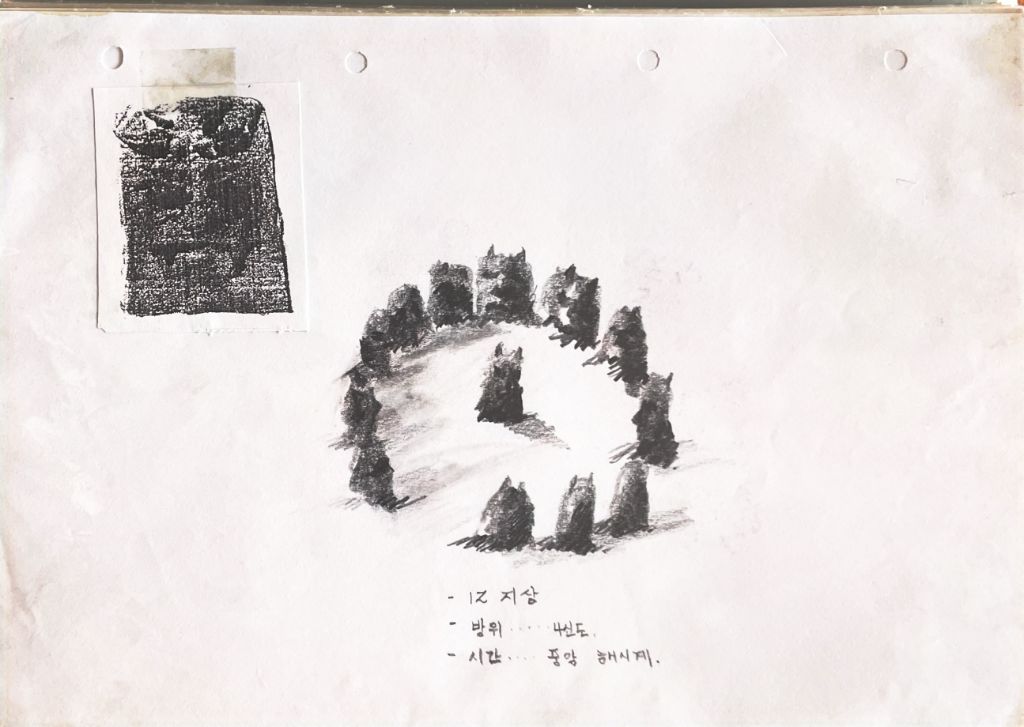 - 12 지상
- 방위 ····· 4신도.
- 시간 ···· 중앙 해시계.